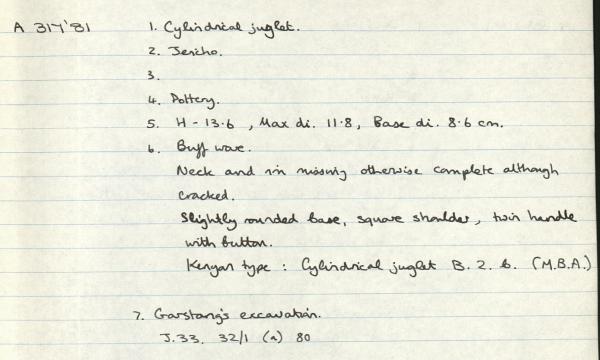 A 317'81 1. Cylindrical juglet.
2. Jericho.
3.
4. Pottery.
5. H - 13·6 , Max di. 11·8, Base di. 8·6 cm.
6. Buff ware.
Neck and rim missing otherwise complete although
cracked.
Slightly rounded base, square shoulder, twin handle
with button.
Kenyan type : Cylindrical juglet B. 2. b. (M.B.A.)
7. Garstang's excavation.
J.33. 32/1 (a) 80